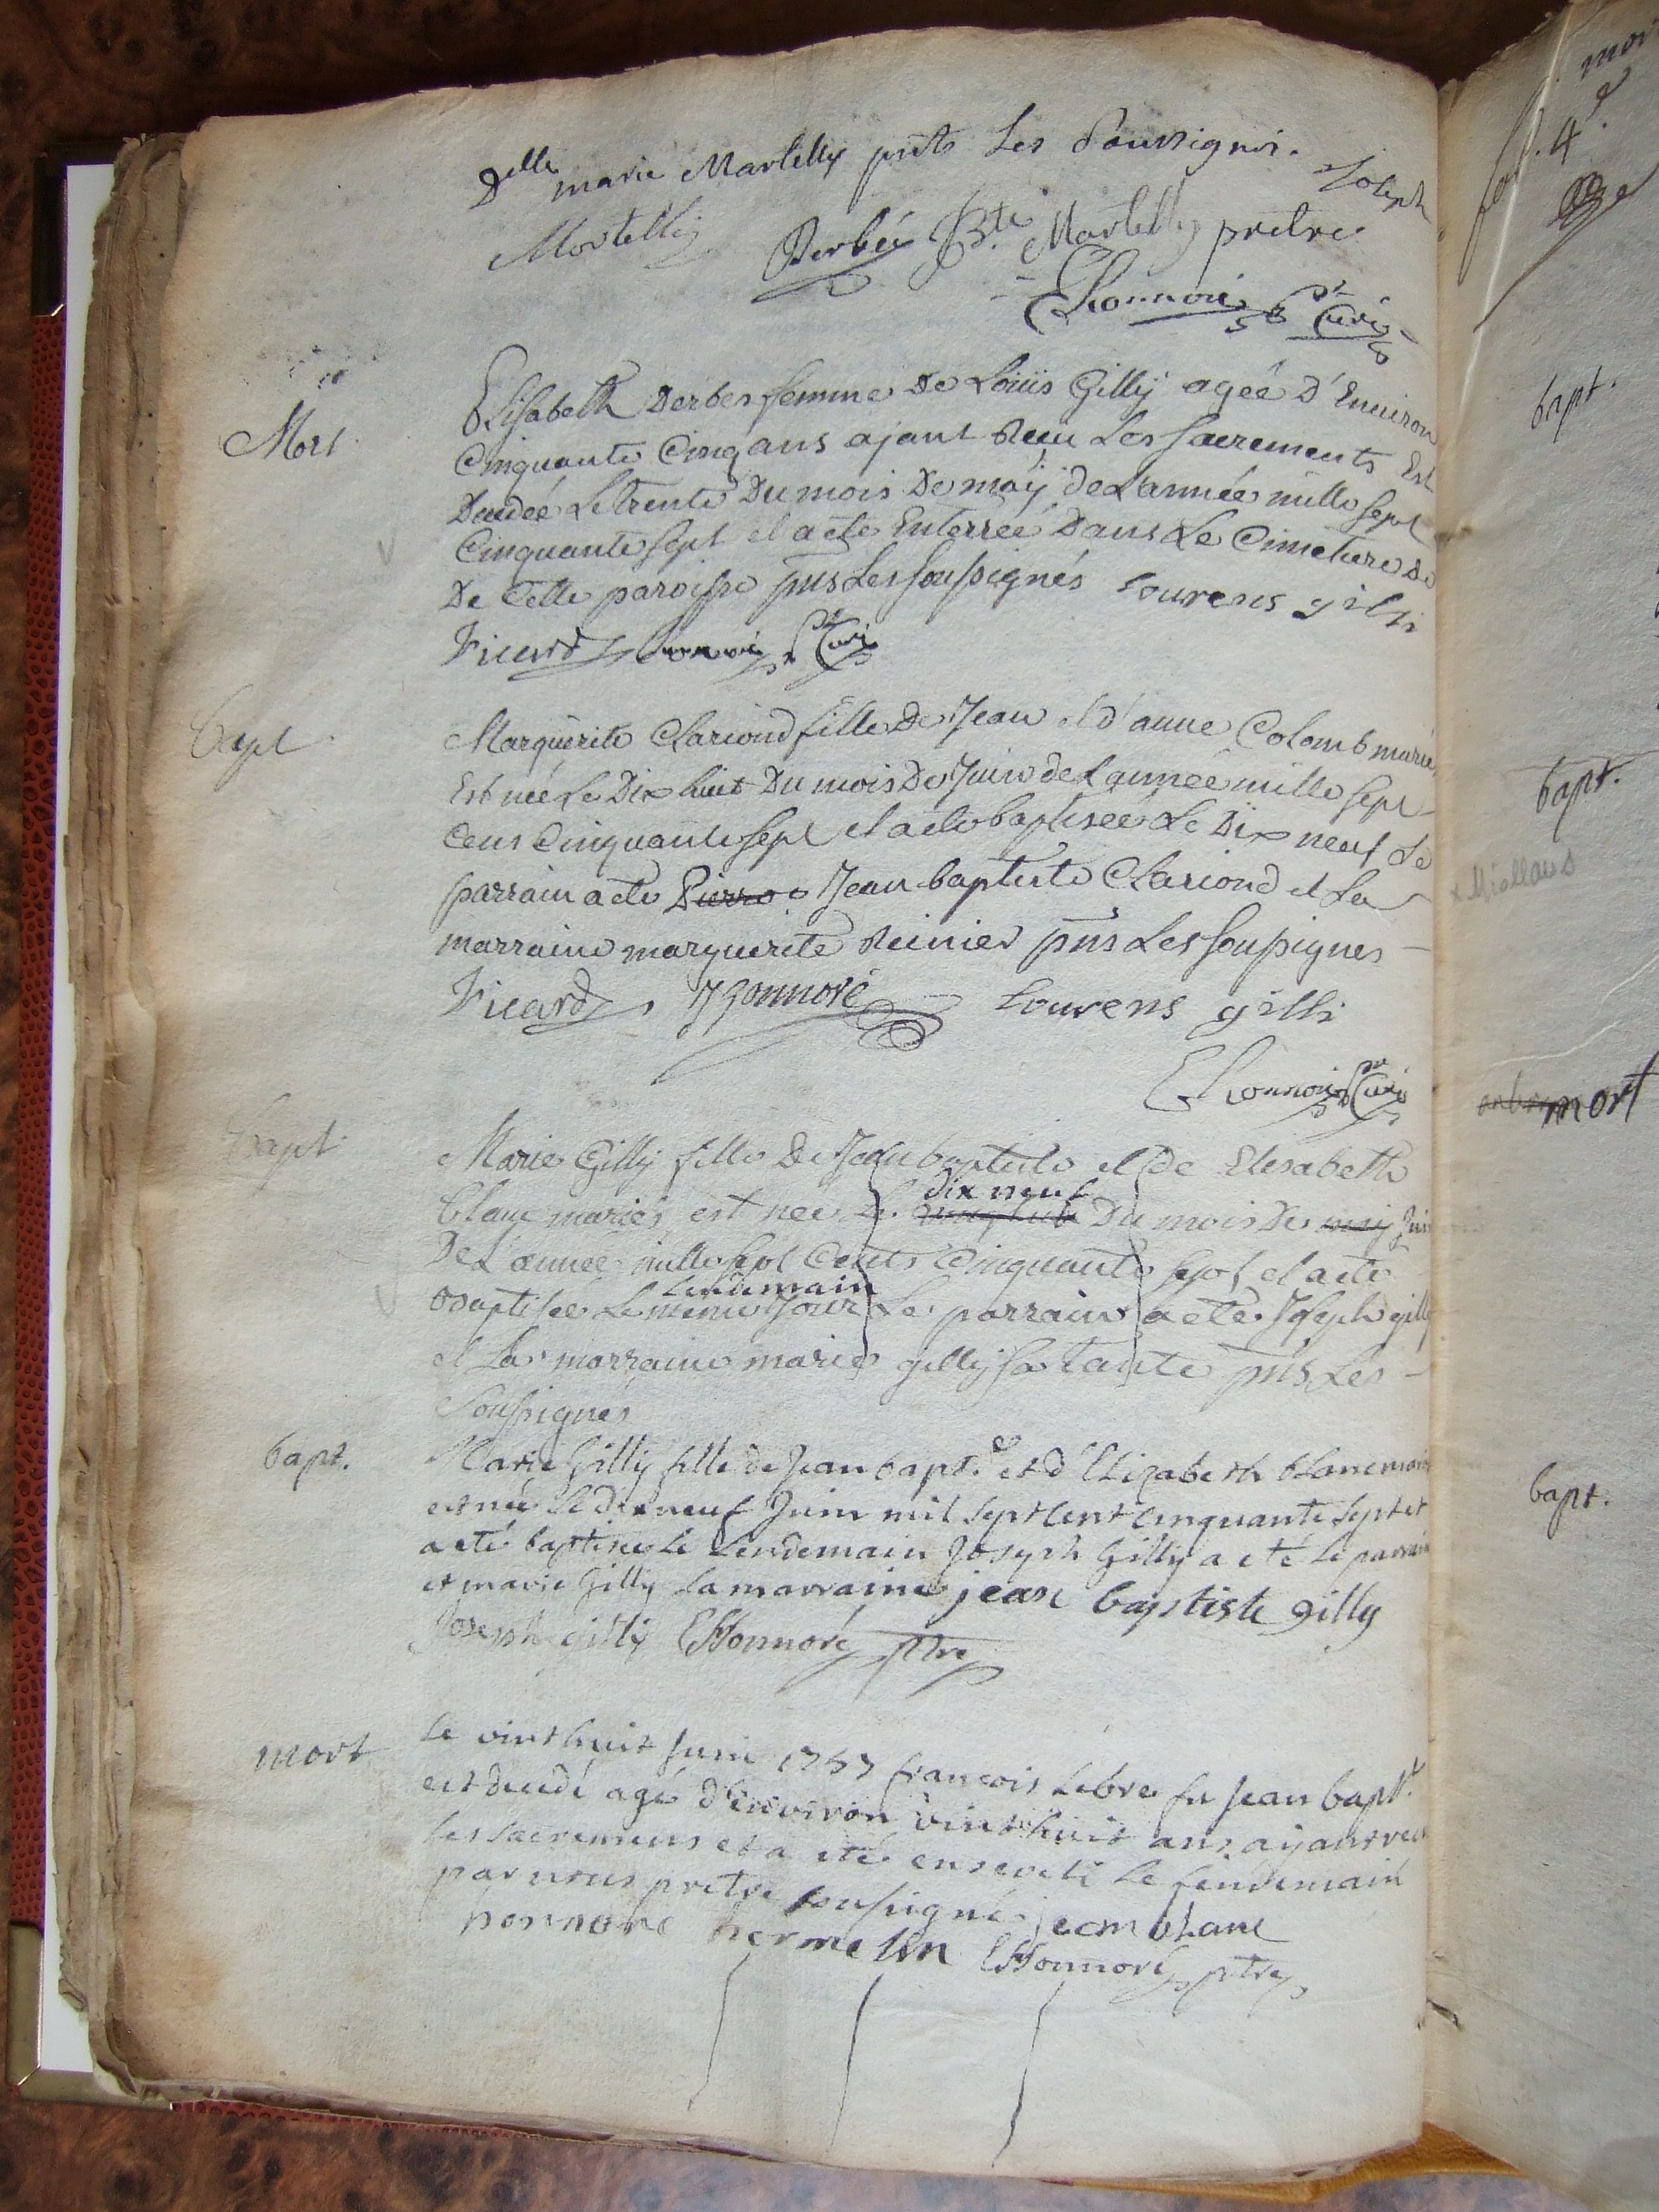 Delle marie Martelly prnts Les Soussignes. Joseph
Martelly Derbés Bte. Martelly pretre
EHonnoré pr Curé
Mort
Elisabeth Derbes femme De Loüis Gillÿ ageé D'Environ
Cinquante Cinq ans ajant Receu Les Sacrements Est
Decedée Le trente Du mois De maÿ de L'année mille Sept
Cinquante Sept et a eté Enterreé Dans Le Cimetiere De
De Cette paroisse pns Les Soussignés Lourens gilli
Ficard Honnoré pr Curé
Bapt
Marguerite Clariond fille De Jean et d'anne Colomb mariés
Est née Le Dix huit Du mois De Juin de L'année mille Sept
Cens Cinquante Sept et a eté baptiseé Le Dix neuf Le
parrain a eté Pierre Jean baptiste Clariond et La
marraine marguerite Reinier pns Les Soussignes
Ficard JHonnoré Lourens gilli
EHonnoré pr Curé
Bapt
Marie Gillÿ fille De Jean baptiste et de Elisabeth
dix neuf
Blanc mariés est neé Le Du mois De maÿ Juin
De L'année mille Sept Cents Cinquante Sept et a eté
Lendemain
Baptisee Le meme Jour Le parrain a eté Joseph gilly
et La marraine marie gillÿ Sa tante pns Les
Soussignés
bapt.
Marie Gillÿ fille de Jean bapt.e et d'Elizabeth blanc mariés
est neé Le dix neuf Juin mil Sept Cent Cinquante Sept et
a eté baptisée Le Lendemain Joseph Gillÿ a eté Le parrain
et marie Gilly La marraine jean baptiste gilly
Joseph gilly EHonnoré ptre
mort
Le vint huit Juin 1757 françois Lebre fu Jean bapt.
est decedé agé d'environ vint huit ans aijant recu
Les Sacremens et a eté enseveli Le Lendemain
par nous pretre soussigné jean blanc
honnore hermelin EHonnoré ptre
4e
bapt.
bapt.
Miollans
mort
bapt.